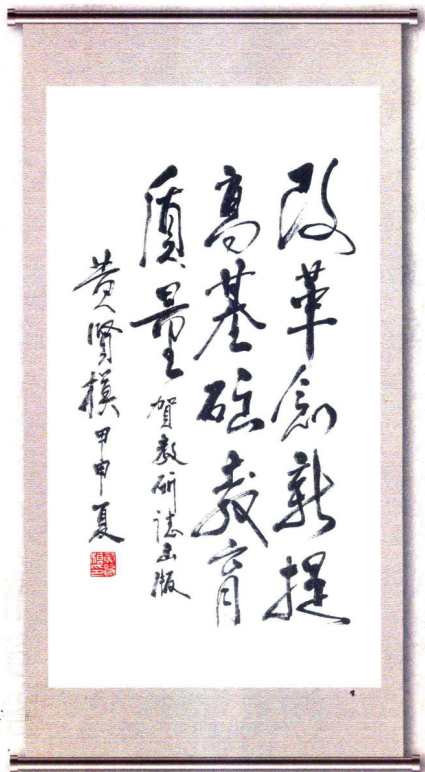 改革创新提
高基础教育
質量 賀教研誌出版
黄賢模 甲申夏